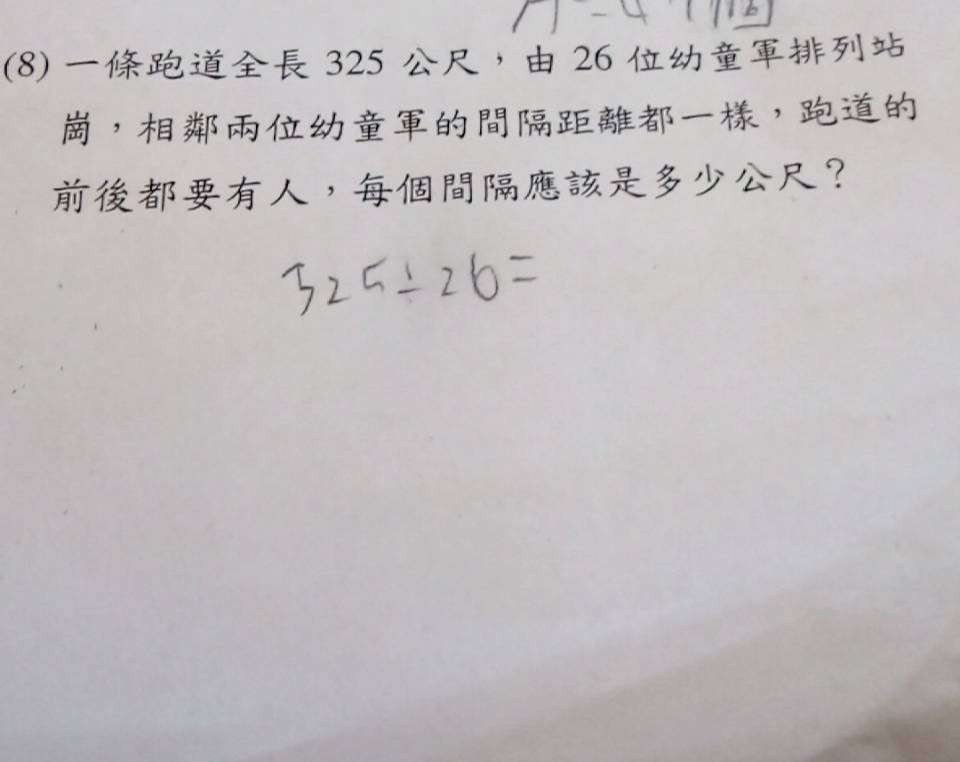 (8) 一條跑道全長 325 公尺，由 26 位幼童軍排列站
崗，相鄰兩位幼童軍的間隔距離都一樣，跑道的
前後都要有人，每個間隔應該是多少公尺？
325÷26=